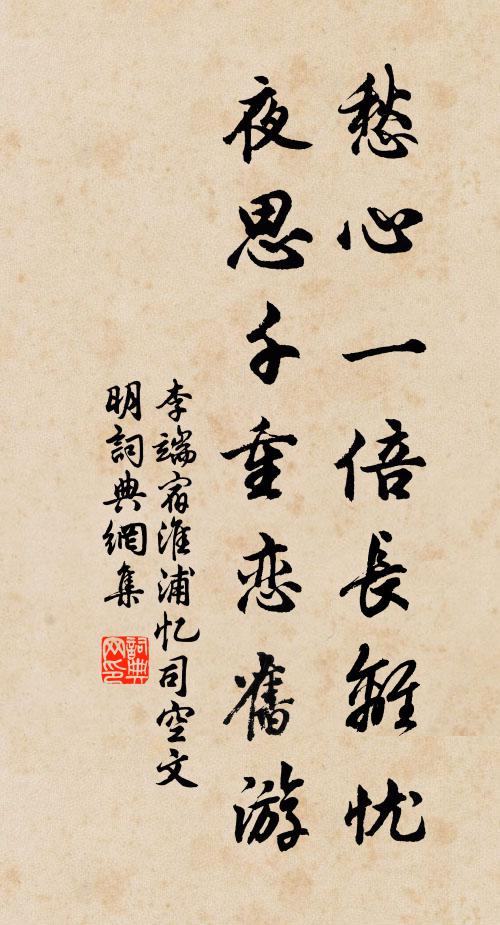 愁心一倍長離忧
夜思千重恋舊游
李端宿淮浦忆司空文
明詞典網集
詞典网印